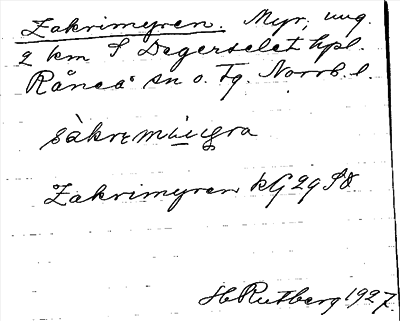 Zakrimyren. Myr, ung.
2 km S Degerselet hpl.
Råneå sn o. Tg. Norrb. l.
Zakrimyren kG 29 SV
H Rutberg 1927.